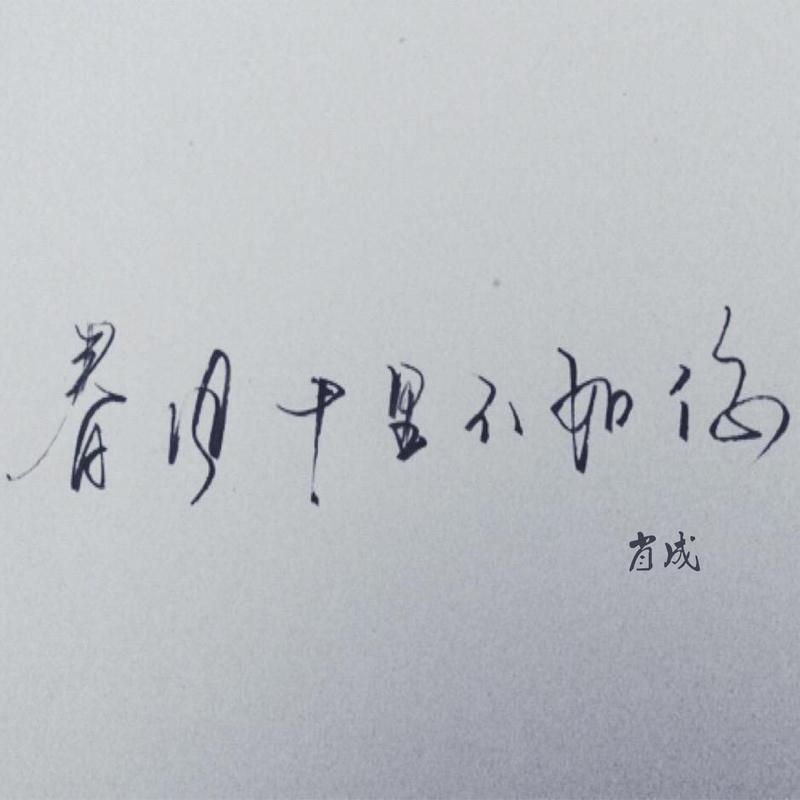 春风十里不如你
肖成